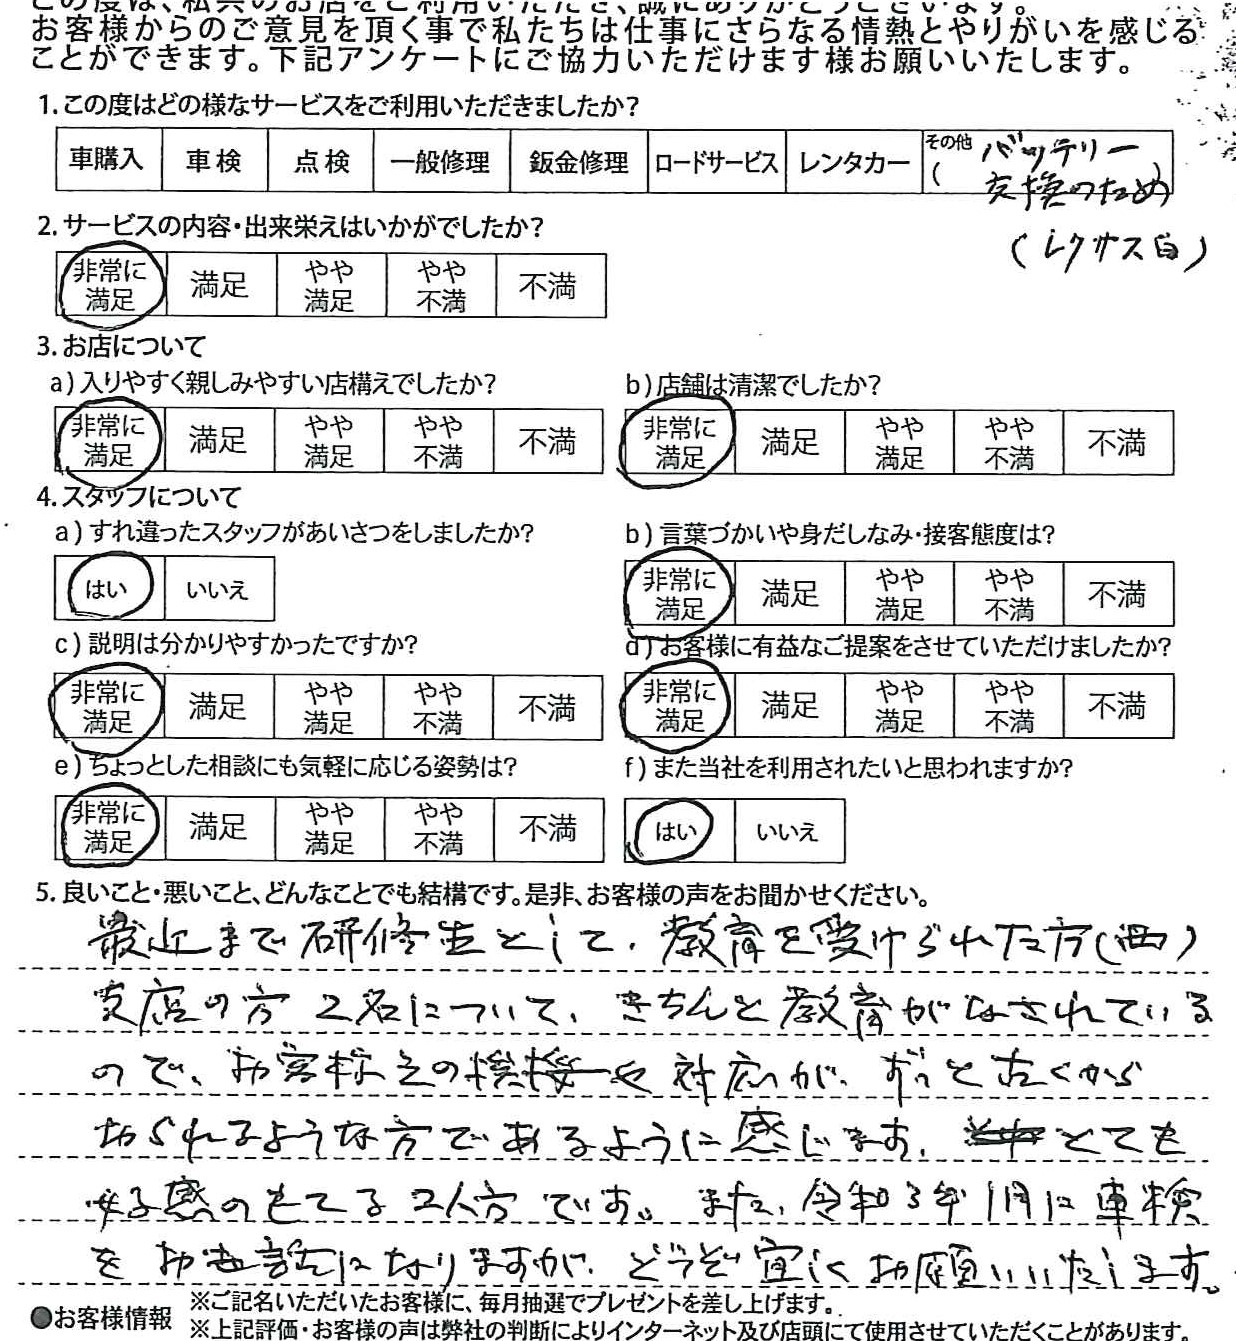 この度は、私共のお店をご利用いただき、誠にありがとうございます。
お客様からのご意見を頂く事で私たちは仕事にさらなる情熱とやりがいを感じる
ことができます。下記アンケートにご協力いただけます様お願いいたします。
1.この度はどの様なサービスをご利用いただきましたか?
車購入 車検 点検 一般修理 鈑金修理 ロードサービス レンタカー その他
( バッテリー
交換のため )
(レクサス白)
2.サービスの内容・出来栄えはいかがでしたか?
非常に満足 満足 やや満足 やや不満 不満
3.お店について
a)入りやすく親しみやすい店構えでしたか? b)店舗は清潔でしたか?
非常に満足 満足 やや満足 やや不満 不満 非常に満足 満足 やや満足 やや不満 不満
4.スタッフについて
a)すれ違ったスタッフがあいさつをしましたか? b)言葉づかいや身だしなみ・接客態度は?
はい いいえ 非常に満足 満足 やや満足 やや不満 不満
c)説明は分かりやすかったですか? d)お客様に有益なご提案をさせていただけましたか?
非常に満足 満足 やや満足 やや不満 不満 非常に満足 満足 やや満足 やや不満 不満
e)ちょっとした相談にも気軽に応じる姿勢は? f)また当社を利用されたいと思われますか?
非常に満足 満足 やや満足 やや不満 不満 はい いいえ
5.良いこと・悪いこと、どんなことでも結構です。是非、お客様の声をお聞かせください。
最近まで研修生として、教育を受けられた方(西)
支店の方2名について、きちんと教育がなされている
ので、お客様との挨拶や対応が、ずっと古くから
おられるような方であるように感じます。とても
好感のもてる2人方です。また、令和3年1月に車検
をお世話になりますが、どうぞ宜しくお願いいたします。
●お客様情報 ※ご記名いただいたお客様に、毎月抽選でプレゼントを差し上げます。
※上記評価・お客様の声は弊社の判断によりインターネット及び店頭にて使用させていただくことがあります。